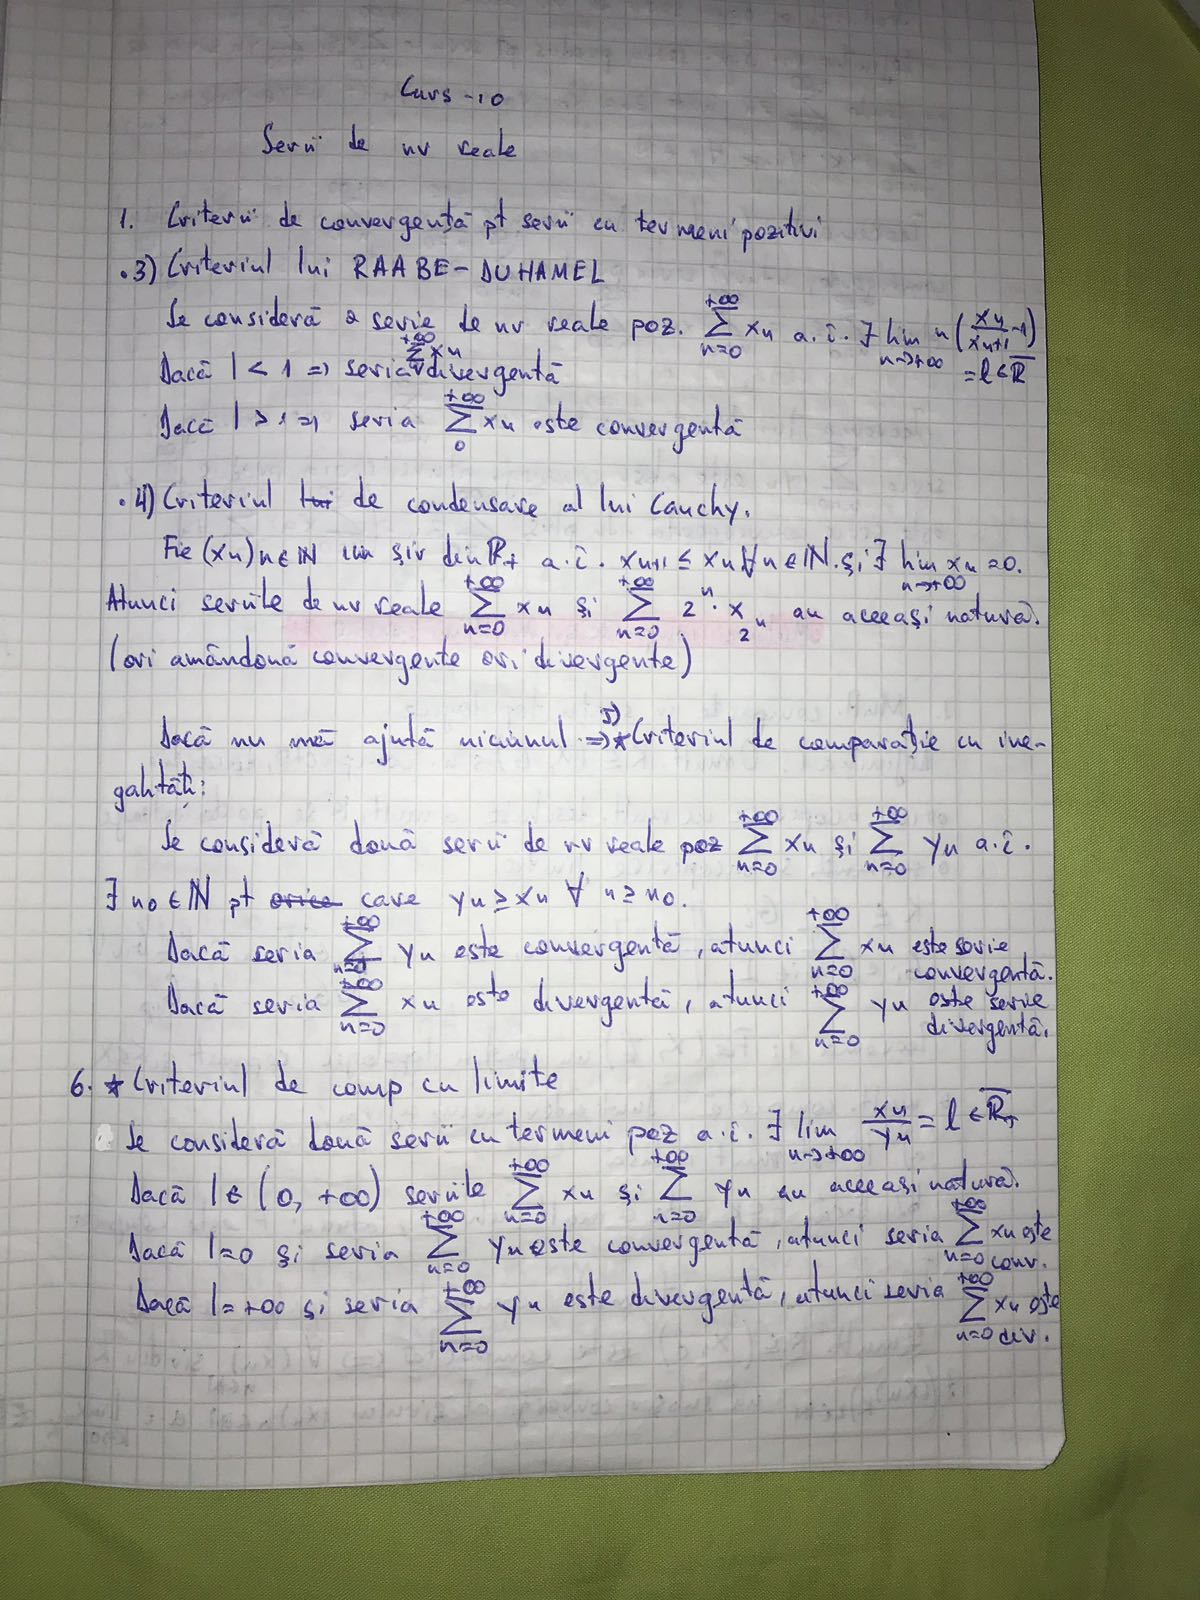 Curs - 10
Serii de nr reale
1. Criterii de convergență pt serii cu termeni pozitivi
.3) Criteriul lui RAABE-DUHAMEL
Se consideră o serie de nr reale poz. +∞ ∑ n=0 xn a.î. ∃ lim n→+∞ n(xn/xn+1 -1)
= l ∈ R̅
Dacă l < 1 => seria +∞ ∑ xn divergentă
Dacă l > 1 => seria +∞ ∑ 0 xn este convergentă
.4) Criteriul lui de condensare al lui Cauchy.
Fie (xn)n∈ℕ un șir din ℝ+ a.î. xn+1 ≤ xn ∀n∈ℕ. și ∃ lim n→+∞ xn = 0.
Atunci seriile de nr reale +∞ ∑ n=0 xn și +∞ ∑ n=0 2^n · x 2^n au aceeași natură.
(ori amândouă convergente ori divergente)
Dacă nu mă ajută niciunul => 5) * Criteriul de comparație cu ine-
galități:
Se consideră două serii de nr reale poz +∞ ∑ n=0 xn și +∞ ∑ n=0 yn a.î.
∃ n0 ∈ ℕ pt orice care yn ≥ xn ∀ n ≥ n0.
Dacă seria +∞ ∑ n=0 yn este convergentă, atunci +∞ ∑ n=0 xn este serie
convergentă.
Dacă seria +∞ ∑ n=0 xn este divergentă, atunci +∞ ∑ n=0 yn este serie
divergentă.
6. * Criteriul de comp cu limite
Se consideră două serii cu termeni poz a.î. ∃ lim n→+∞ xn/yn = l ∈ R̅+
Dacă l ∈ (0, +∞) seriile +∞ ∑ n=0 xn și +∞ ∑ n=0 yn au aceeași natură.
Dacă l=0 și seria +∞ ∑ n=0 yn este convergentă, atunci seria +∞ ∑ n=0 xn este
conv.
Dacă l=+∞ și seria +∞ ∑ n=0 yn este divergentă, atunci seria +∞ ∑ n=0 xn este
div.